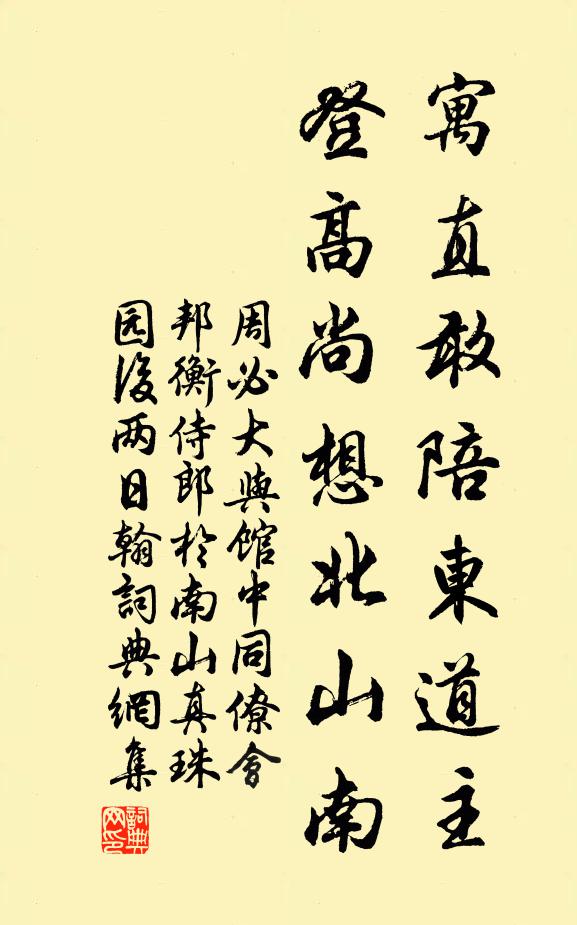 寓直敢陪東道主
登高尚想北山南
周必大與馆中同僚會
邦衡侍郎於南山真珠
园後两日翰詞典網集
詞典
网印